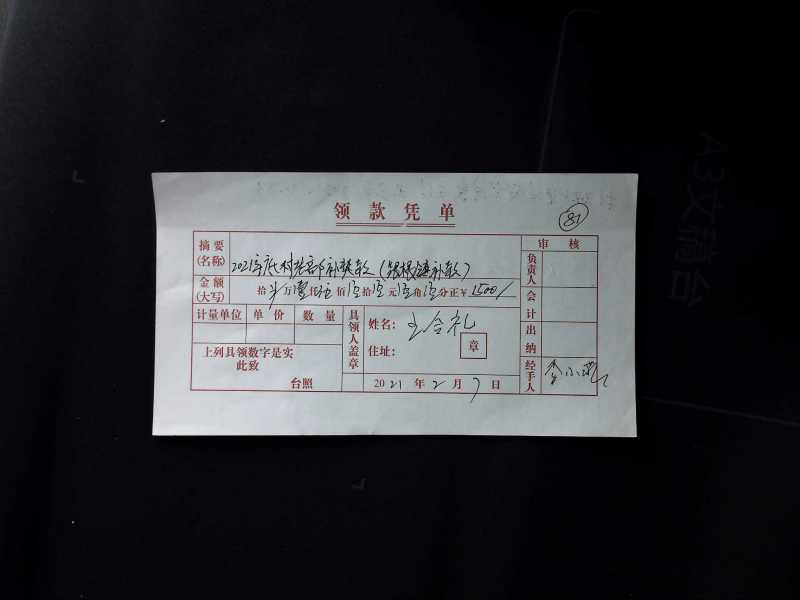 领款凭单
81
摘要(名称) 2021年 村老干部补贴款（ 镇补款）
金额(大写) 拾 万壹仟伍佰 拾 元 角 分正¥ 1500/
计量单位 单价 数量
上列具领数字是实
此致
台照
具领人盖章
姓名: 王合礼
住址:
章
2021年2月7日
审核
负责人
会计
出纳
经手人 李小
A3文稿台